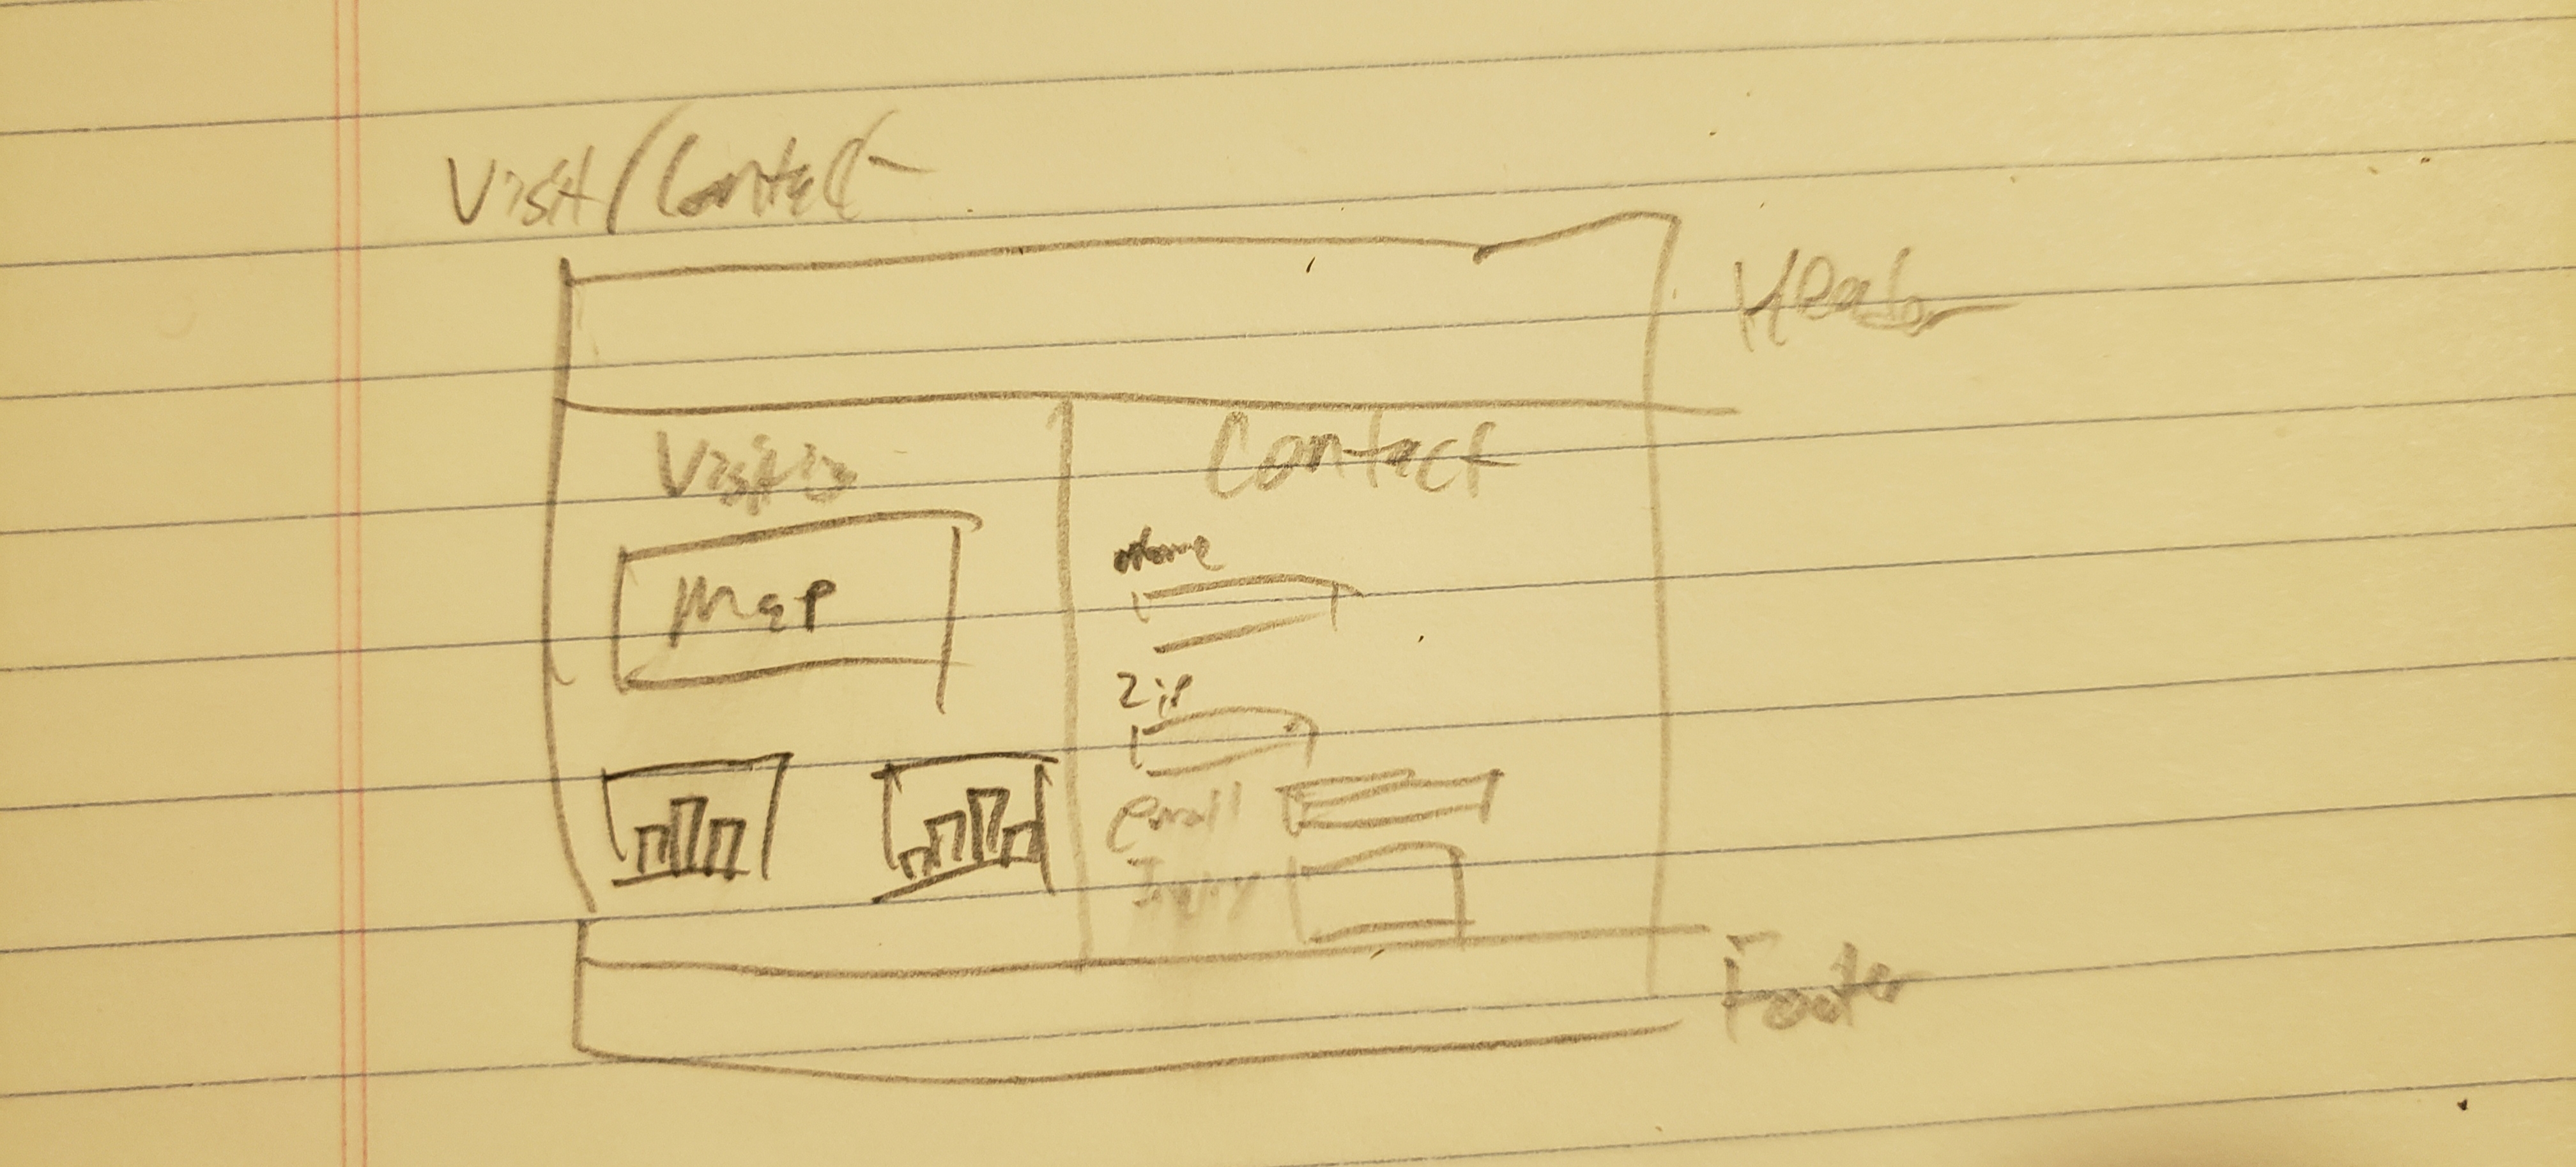 Visit/Contact
Header
Contact
Map
Name
Zip
email
Inquiry
Footer